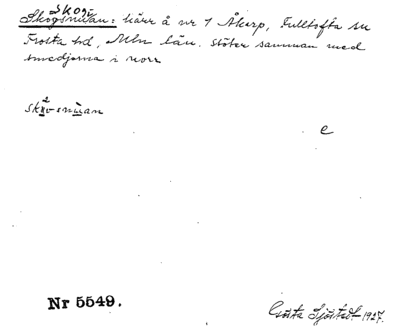 SKOGS
Skogsmúan: kärr å nr 1 Åkarp, Fulltofta sn
Frosta hd, Mlm län. stöter samman med
smedjorna i norr
skɷ²vsmùan
e
Nr 5549.
Gösta Sjöstedt 1927.